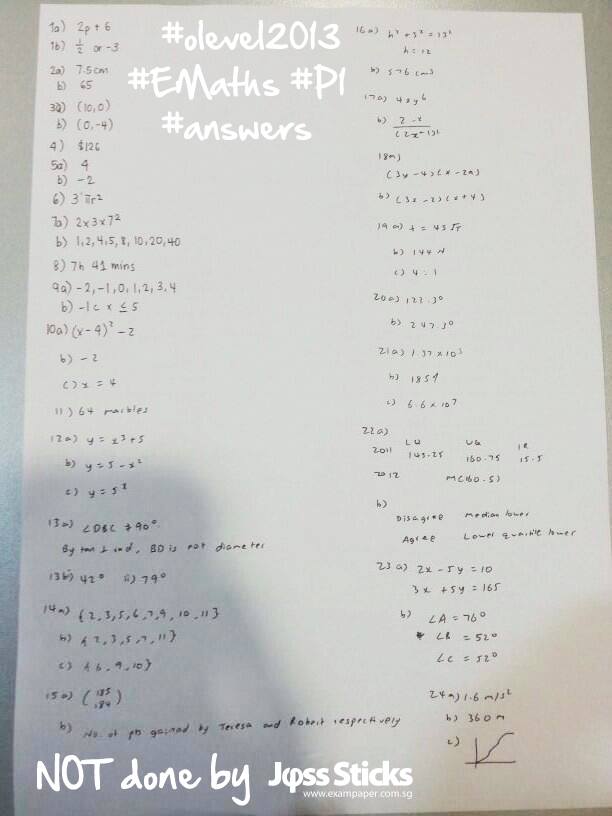 #olevel2013
#EMaths #P1
#answers
1a) 2p + 6
1b) 1/2 or -3
2a) 7.5cm
b) 65
3a) (10,0)
b) (0,-4)
4) $126
5a) 4
b) -2
6) 3πr²
7a) 2x3x7²
b) 1,2,4,5,8,10,20,40
8) 7h 41 mins
9a) -2,-1,0,1,2,3,4
b) -1 < x ≤ 5
10a) (x-4)² -2
b) -2
c) x = 4
11) 64 marbles
12a) y = x³+5
b) y = 5 - x²
c) y = 5ˣ
13a) ∠DBC ≠ 90°.
By tan ⊥ rad, BD is not diameter
13bi) 42° ii) 79°
14a) {2,3,5,6,7,9,10,11}
b) {2,3,5,7,11}
c) {6,9,10}
15a) (185 184)
b) No. of pts gained by Teresa and Robert respectively
16a) h² + 5² = 13²
h = 12
b) 576 cm³
17a) 48y⁶
b)
18a)
(3y-4)(x-2a)
b) (3x-2)(x+4)
19a)
b) 144 N
c) 4:1
20a) 122.3°
b) 247.3°
21a) 1.37 x 10³
b) 1854
c) 6.6 x 10⁷
22a)
LQ UQ IR
2011 145.25 160.75 15.5
2012 M(160.5)
b)
Disagree Median lower
Agree Lower quartile lower
23a) 2x - 5y = 10
3x + 5y = 165
b) ∠A = 76°
∠B = 52°
∠C = 52°
24a) 1.6 m/s²
b) 360 m
c)
NOT done by Joss Sticks
www.exampaper.com.sg